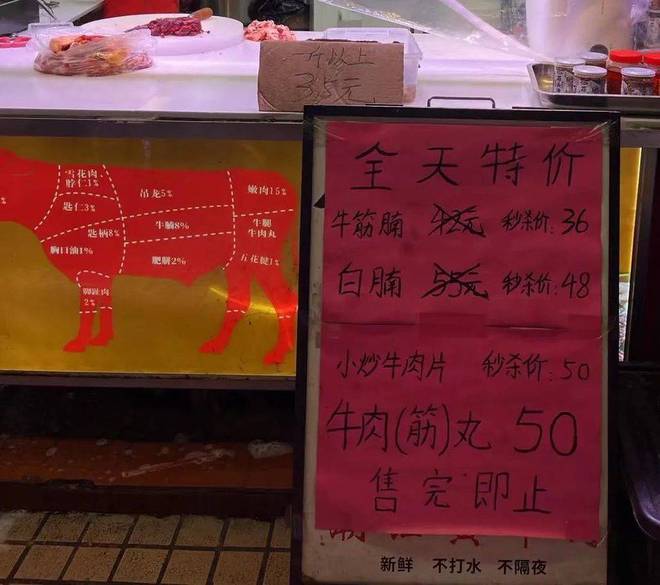 一斤以上
35元
雪花肉
脖仁1%
匙仁3%
匙柄8%
胸口油1%
脚趾肉
2%
吊龙5%
牛腩8%
肥胼2%
嫩肉15%
牛腿
牛肉丸
五花腱1%
全天特价
牛筋腩 42元 秒杀价:36
白腩 55元 秒杀价:48
小炒牛肉片 秒杀价:50
牛肉(筋)丸 50
售完即止
新鲜 不打水 不隔夜